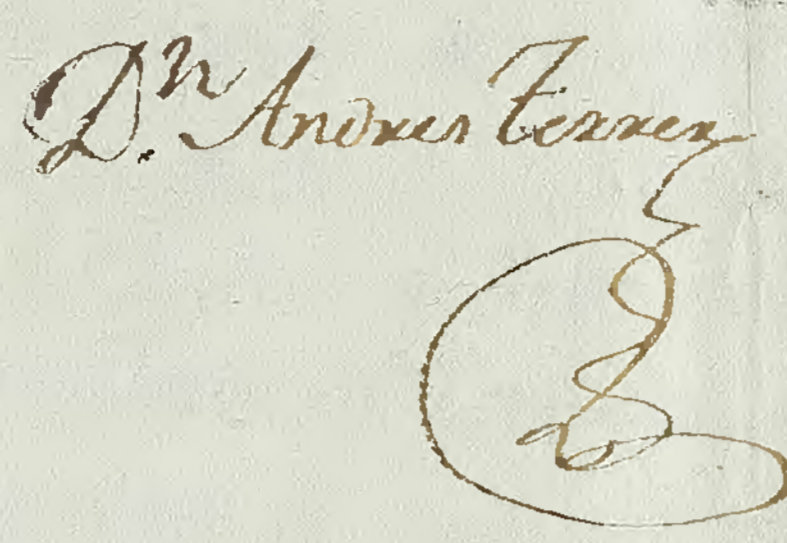 Dn. Andres Ferrer